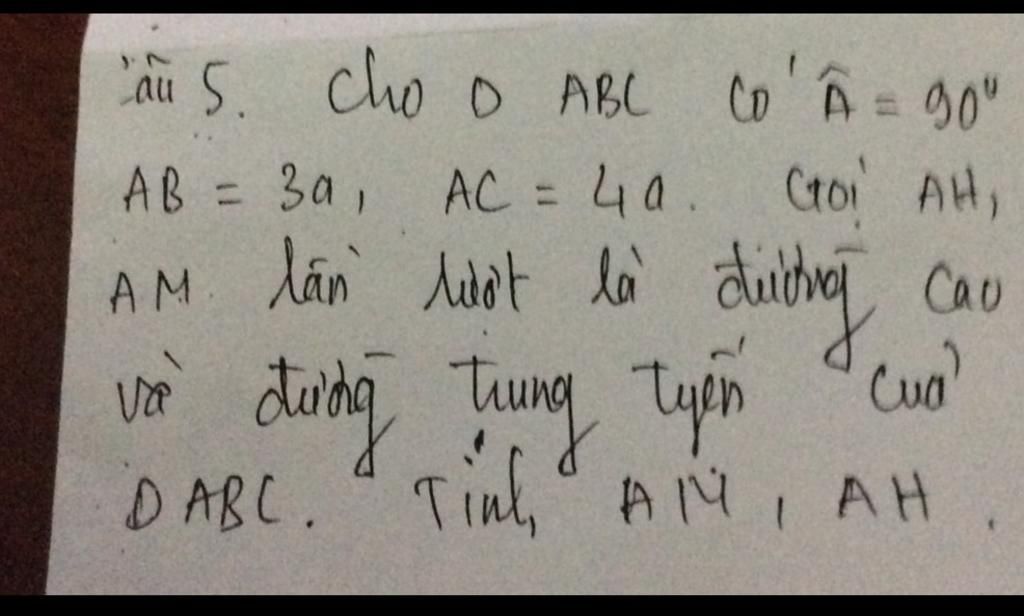 Câu 5. Cho Δ ABC có Â = 90°
AB = 3a, AC = 4a. Gọi AH,
AM lần lượt là đường cao
và đường trung tyến của
Δ ABC. Tính AM, AH.